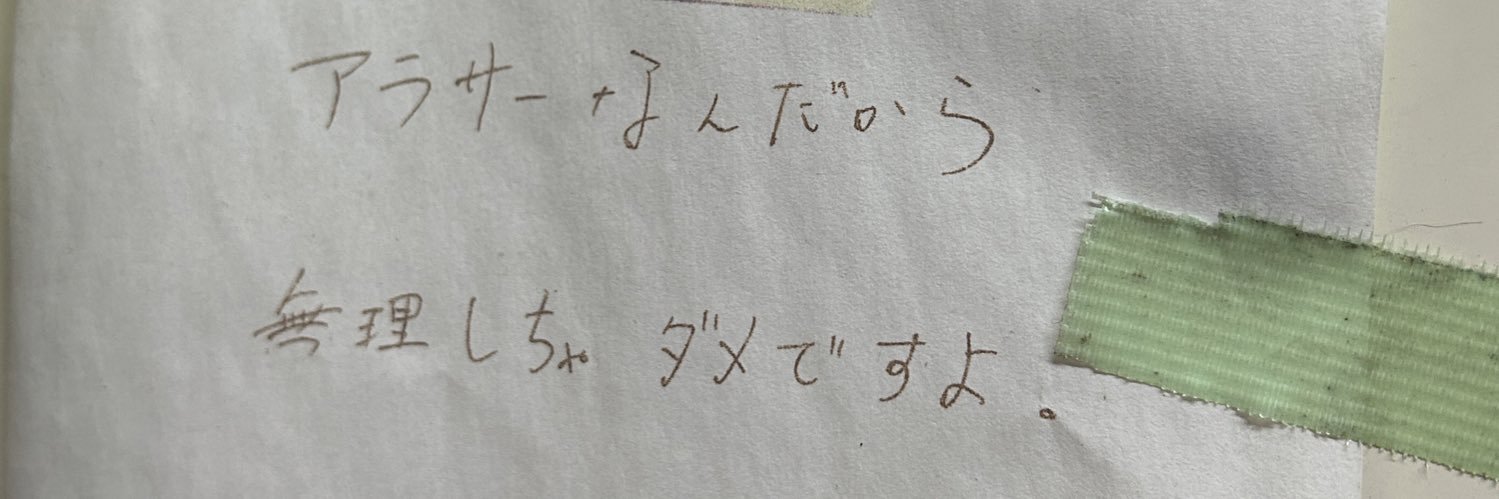 アラサーなんだから
無理しちゃダメですよ。